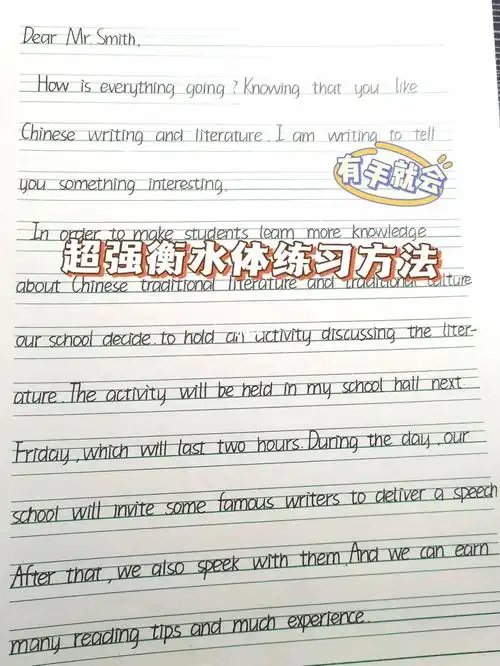 Dear Mr. Smith,
How is everything going? Knowing that you like
Chinese writing and literature. I am writing to tell
有手就会
you something interesting.
In order to make students learn more knowledge
超强衡水体练习方法
about Chinese traditional literature and traditional culture
our school decide to hold an activity discussing the liter-
ature. The activity will be held in my school hall next
Friday, which will last two hours. During the day, our
school will invite some famous writers to deliver a speech
After that, we also speek with them. And we can earn
many reading tips and much experience.